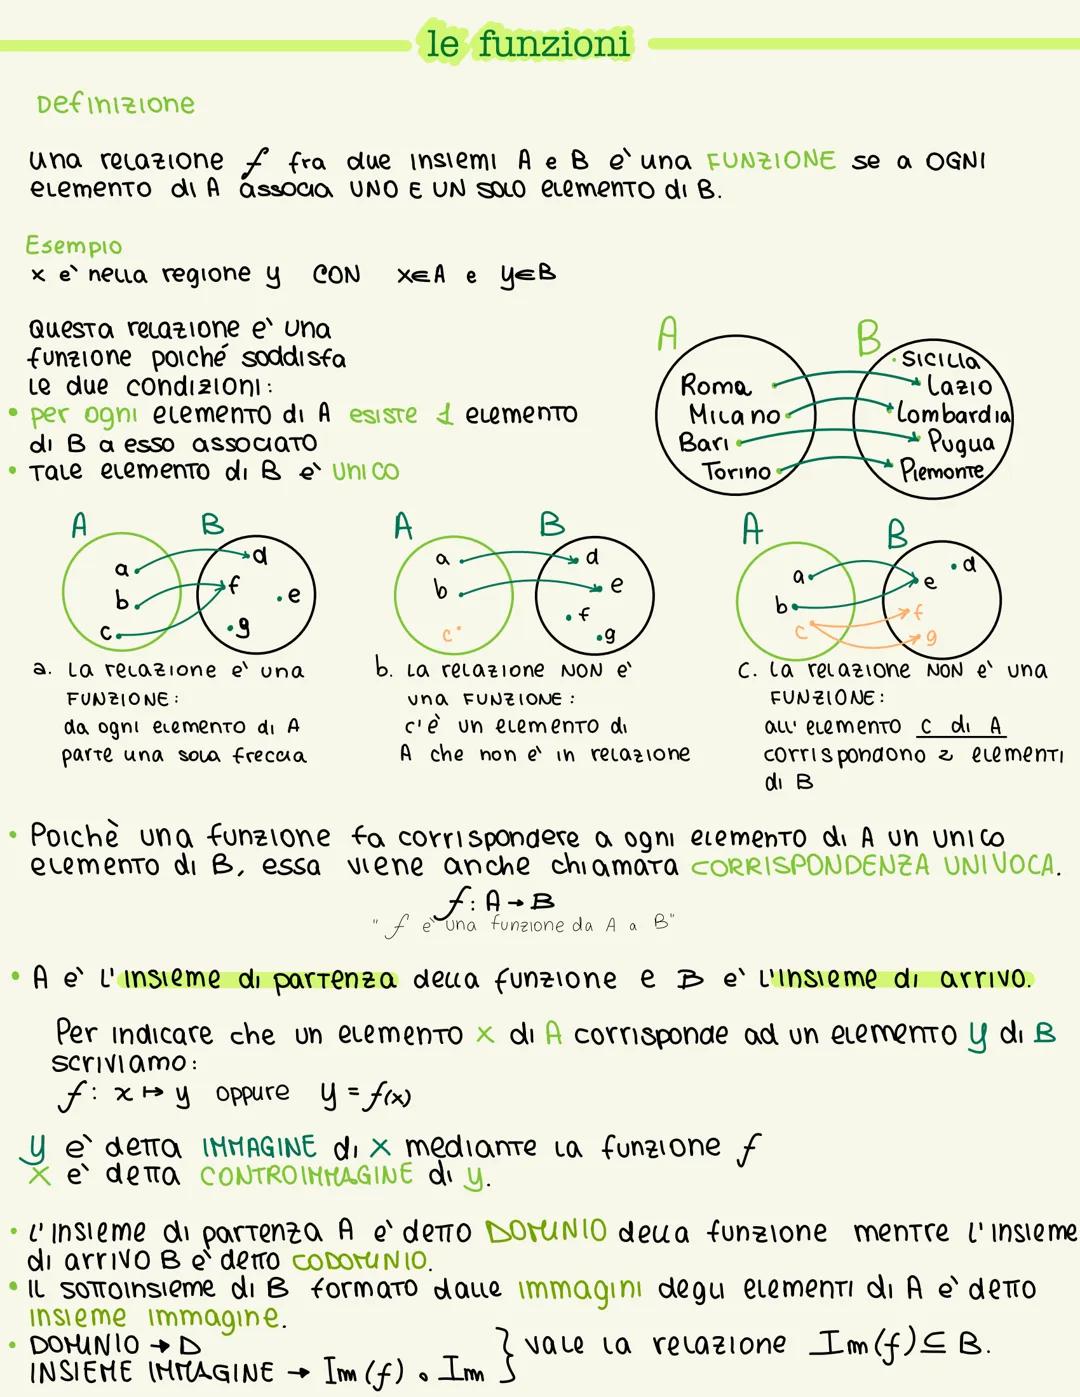 le funzioni
Definizione
una relazione f fra due insiemi A e B e` una FUNZIONE se a OGNI
elemento di A associa UNO E UN SOLO elemento di B.
Esempio
x e` nella regione y CON x∈A e y∈B
Questa relazione e` una
funzione poiché soddisfa
le due condizioni:
• per ogni elemento di A esiste 1 elemento
di B a esso associato
• Tale elemento di B e` unico
A B
Roma
Milano
Bari
Torino
SICILIA
Lazio
Lombardia
Pugua
Piemonte
A B
a
b
c
d
f
e
g
a. La relazione e` una
FUNZIONE:
da ogni elemento di A
parte una sola freccia
A B
a
b
c
d
e
f
g
b. La relazione NON e`
una FUNZIONE:
c'è un elemento di
A che non e` in relazione
A B
a
b
c
d
e
f
g
C. La relazione NON e` una
FUNZIONE:
all' elemento c di A
corrispondono 2 elementi
di B
• Poichè una funzione fa corrispondere a ogni elemento di A un unico
elemento di B, essa viene anche chiamata CORRISPONDENZA UNIVOCA.
f: A → B
" f e` una funzione da A a B"
• A e` l'insieme di partenza della funzione e B e` l'insieme di arrivo.
Per indicare che un elemento x di A corrisponde ad un elemento y di B
scriviamo:
f: x ↦ y oppure y = f(x)
y e` detta IMMAGINE di x mediante la funzione f
x e` detta CONTROIMMAGINE di y.
• L'insieme di partenza A e` detto DOMINIO della funzione mentre l'insieme
di arrivo B e` detto CODOMINIO.
• Il sottoinsieme di B formato dalle immagini degli elementi di A e` detto
insieme immagine.
• DOMINIO → D
INSIEME IMMAGINE → Im (f) o Im } vale la relazione Im(f) ⊆ B.